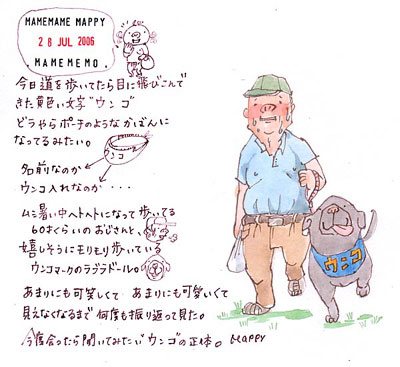 MAMEMAME MAPPY
28 JUL 2006
.MAMEMEMO.
今日道を歩いてたら目に飛びこんで
きた黄色い文字"ウンゴ"
どうやらポーチのようなかばんに
なってるみたい。
ウンコ
名前なのか
ウンコ入れなのか・・・
ムシ暑い中ヘトヘトになって歩いてる
60才くらいのおじさんと、
嬉しそうにモリモリ歩いている
ウンコマークのラブラドール。
あまりにも可笑しくて あまりにも可愛いくて
見えなくなるまで何度も振り返って見た。
今度会ったら聞いてみたい"ウンゴ"の正体。 Mappy
ウンコ